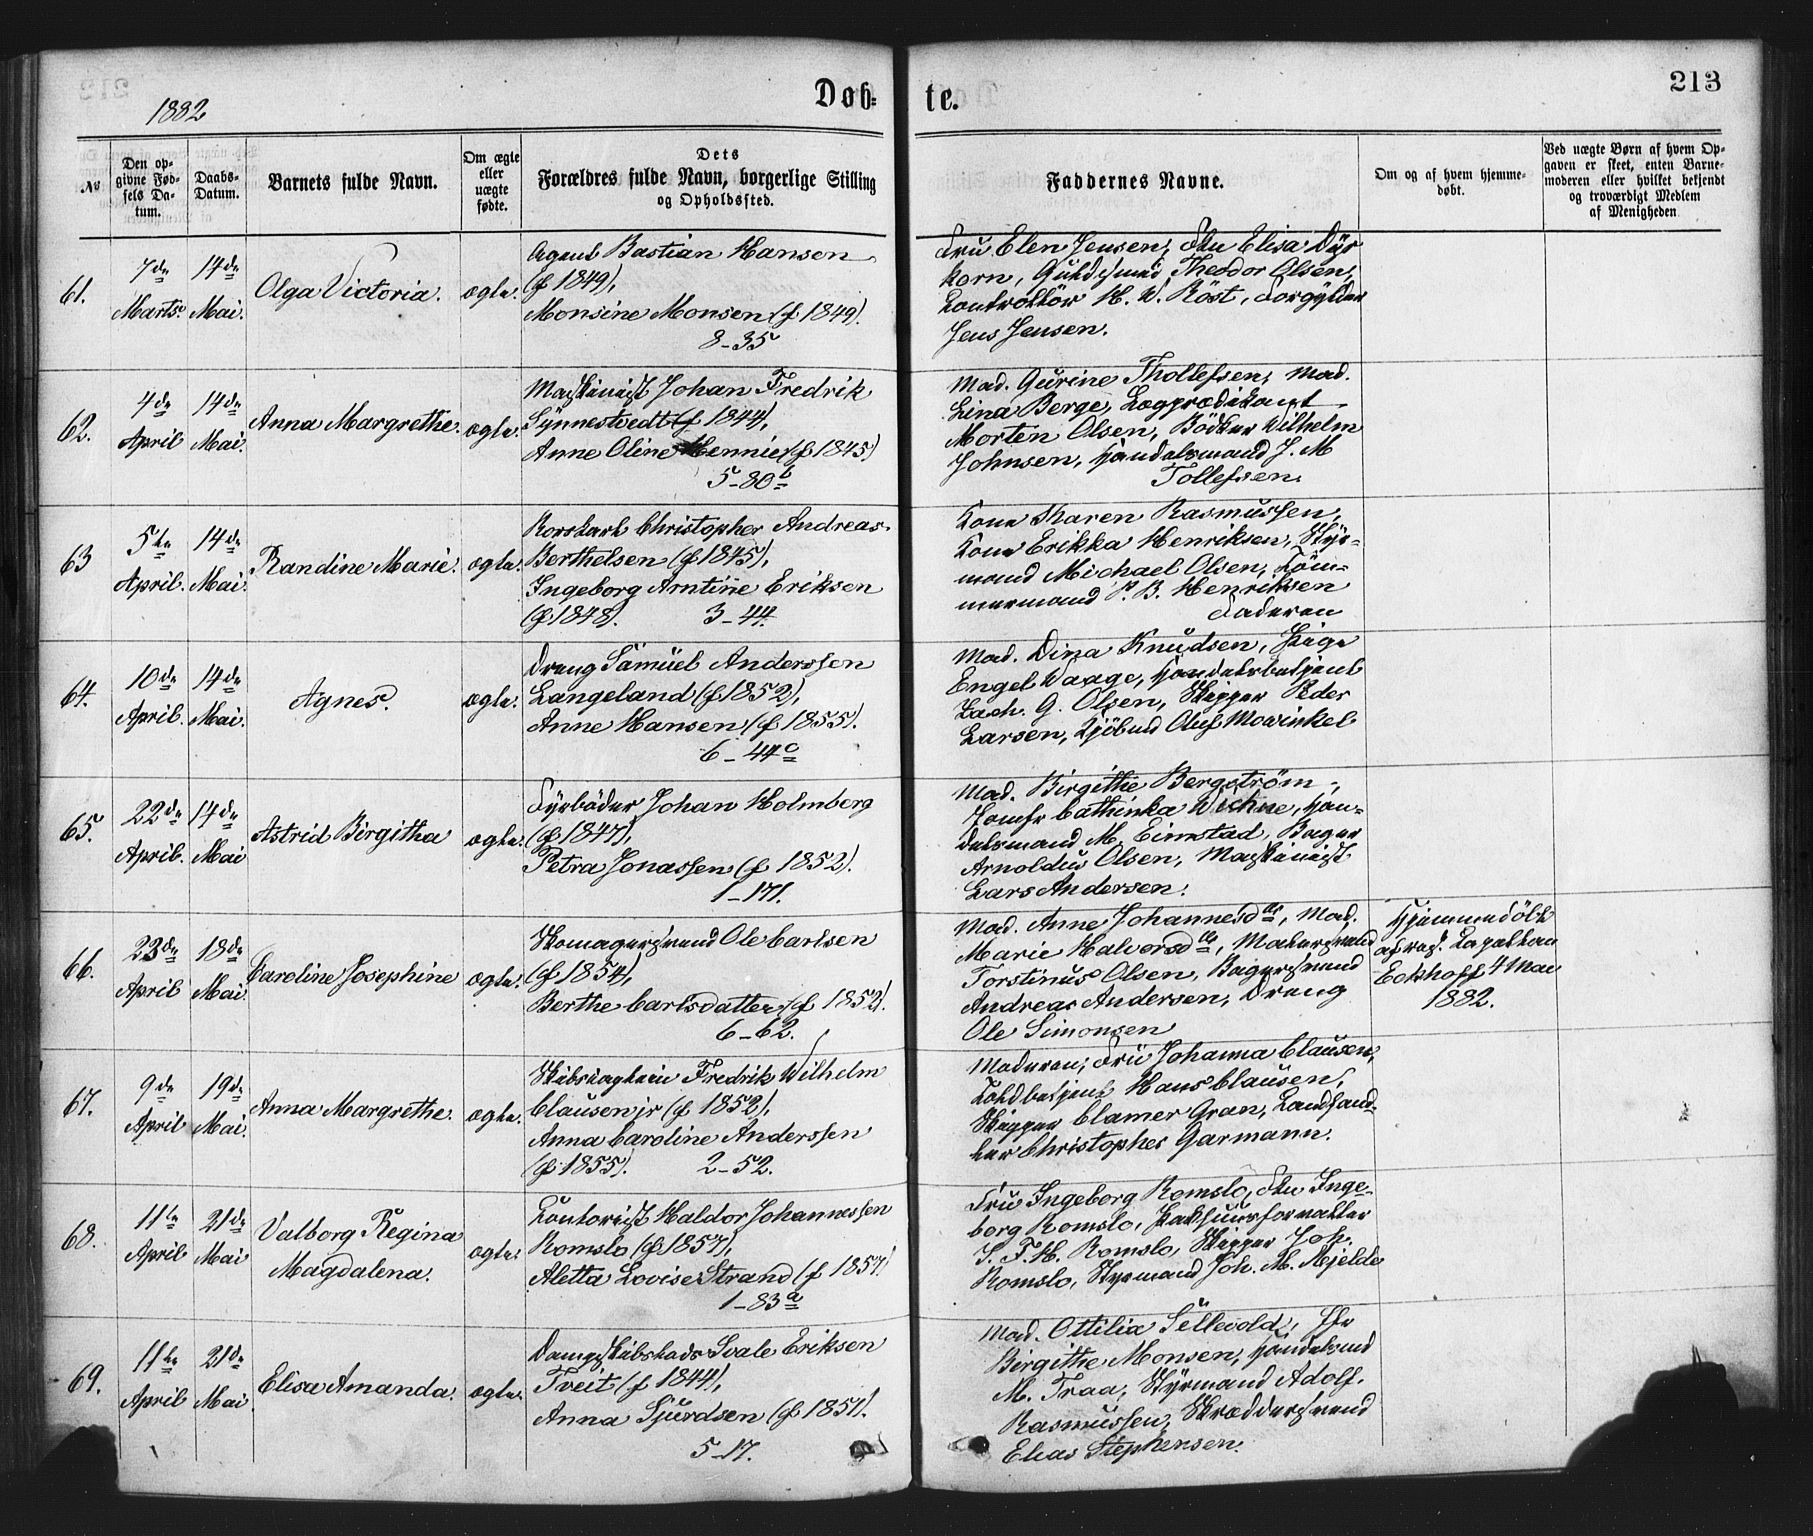 1882
Døb-
te.
213
No
Den op-
givne Fød-
sels Da-
tum.
Daabs-
Datum.
Barnets fulde Navn.
Om ægte
eller
uægte
fødte.
Dets
Forældres fulde Navn, borgerlige Stilling
og Opholdssted.
Faddernes Navne.
Om og af hvem hjemme-
døbt.
Ved uægte Børn af hvem Op-
gaven er skeet, enten Barne-
moderen eller hvilket bekjendt
og troværdigt Medlem
af Menigheden
61.
7de
Marts.
14de
Mai.
Olga Victoria.
ægte.
Agent Bastian Hansen
(f 1849),
Monsine Monsen (f 1849).
8-35
Fru Elen Jensen, Fru Elisa Dyr
korn, Guldsmed Theodor Olsen,
Controllør H. W. Röst, Forgylder
Jens Jensen.
62.
4de
April
14de
Mai.
Anna Margrethe.
ægte.
Maskinist Johan Fredrik
Synnestvedt (f 1844),
Anne Oline Mennie (f 1845)
5-80b
Mad. Gurine Thollefsen, Mad.
Lina Berge, Lægprædikant
Morten Olsen, Bödker Wilhelm
Johnsen, Handelsmand J. M
Tollefsen.
63
5te
April.
14de
Mai.
Randine Marie.
ægte.
Rorskarl Christopher Andreas
Berthelsen (f 1845),
Ingeborg Arntine Eriksen
(f 1848). 3-44.
Kone Maren Rasmussen,
Kone Erikka Henriksen, Styr-
mand Michael Olsen, Töm-
mermand P. B. Henriksen
Faderen
64.
10de
April.
14de
Mai.
Agnes.
ægte.
Dreng Samüel Anderssen
Langeland (f 1852),
Anne Hansen (f 1855).
6-44c
Mad. Dina Knudsen, Pige
Engel Waage, Handelsbetjent
Zach. G. Olsen, Skipper Peder
Larsen, Kjöbmd Oluf Mowinkel
65.
22de
April.
14de
Mai
Astrid Birgitha
ægte.
Fyrböder Johan Holmberg
(f 1847),
Petra Jonassen (f 1852).
1-171.
Mad. Birgithe Bergström,
Jomfr Cathinka Wichne, Han-
delsmand M. Eimstad, Bager
Arnoldus Olsen, Maskinist
Lars Andersen.
66.
23de
April
18de
Mai.
Caroline Josephine
ægte.
Skomagersvend Ole Carlsen
(f 1854),
Berthe Carlsdatter (f 1852).
6-62.
Mad. Anne Johannesdtr, Mad.
Marie Halvorsdtr, Malersvend
Torstinus Olsen, Bagersvend
Andreas Andersen, Dreng
Ole Simonsen
Hjemmedöbt
af res. Capellan
Eckhoff 4 Mai
1882.
67.
9de
April
19de
Mai.
Anna Margrethe.
ægte.
Skibscaptein Fredrik Wilhelm
Clausen jr (f 1852),
Anna Caroline Anderssen
(f 1855). 2-52.
Moderen, Frü Johanna Clausen,
Toldbetjent Hans Clausen,
Skipper Clamer Gran, Landhand-
ler Christopher Garmann.
68.
11te
April
21de
Mai
Valborg Regina
Magdalena.
ægte.
Contorist Haldor Johannessen
Romslo (f 1857),
Aletta Lovise Strand (f 1857).
1-83a
Fru Ingeborg Romslo, Fru Inge-
borg Romslo, Pakhuusforvalter
J. F. H. Romslo, Skipper Joh.
Romslo, Styrmand Joh. M. Mjelde
69.
11te
April
21de
Mai
Elisa Amanda.
ægte.
Dampskibskads Svale Eriksen
Tveit (f 1844),
Anna Sjurdsen (f 1857).
5-17.
Mad. Ottilia Sellevold, Fr
Birgithe Monsen, Handelsmd
M. Traa, Styrmand Adolf
Rasmussen, Skræddersvend
Elias Stephensen.